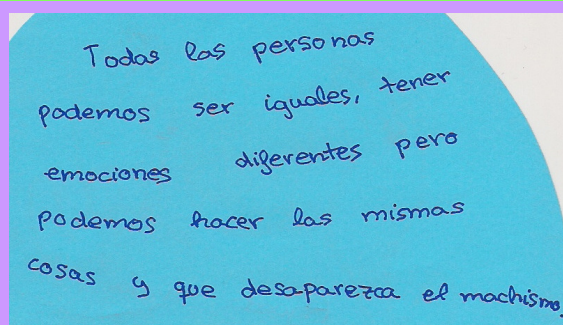 Todas las personas
podemos ser iguales, tener
emociones diferentes pero
podemos hacer las mismas
cosas y que desaparezca el machismo.